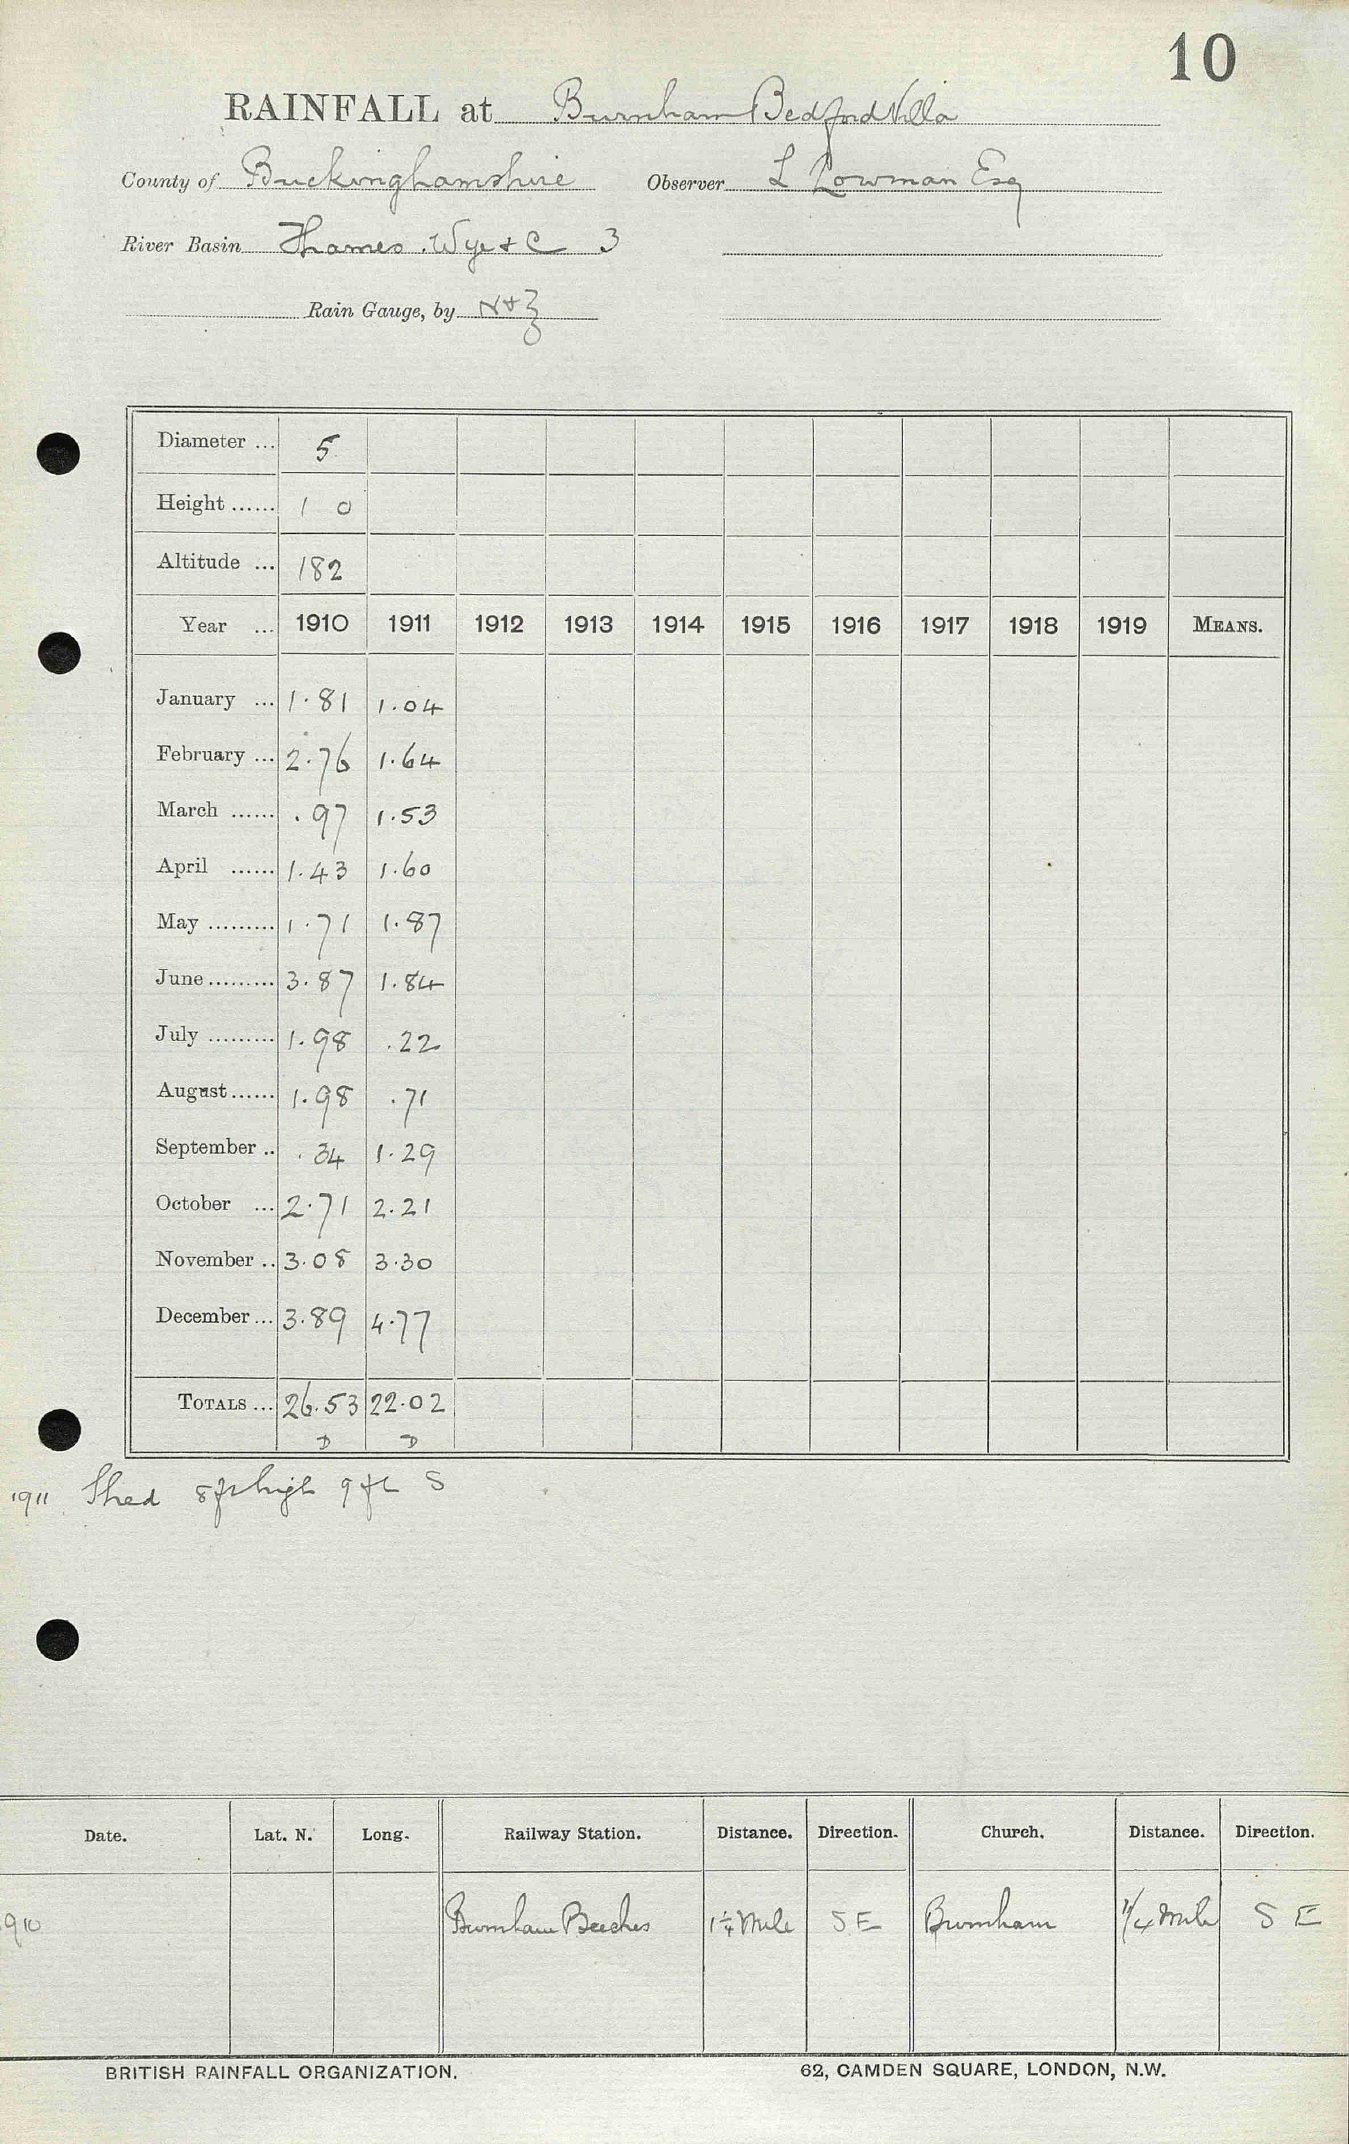 10
RAINFALL at Burnham Bedford Villa
County of Buckinghamshire Observer L Lowman Esq
River Basin Thames Wye & C 3
Rain Gauge, by N & Z
Diameter ... 5
Height ...... 1 0
Altitude ... 182
Year ... 1910 1911 1912 1913 1914 1915 1916 1917 1918 1919 MEANS.
January ... 1.81 1.04
February ... 2.76 1.64
March ...... .97 1.53
April ...... 1.43 1.60
May ......... 1.71 1.87
June ......... 3.87 1.84
July ......... 1.98 .22
August ...... 1.98 .71
September .. .34 1.29
October ... 2.71 2.21
November .. 3.08 3.30
December ... 3.89 4.77
TOTALS ... 26.53 22.02
D D
1911 Shed 8 ft high 9 ft S
Date. Lat. N. Long. Railway Station. Distance. Direction. Church. Distance. Direction.
910 Burnham Beeches 1 1/4 Mile S E Burnham 1/4 Mile S E
BRITISH RAINFALL ORGANIZATION. 62, CAMDEN SQUARE, LONDON, N.W.